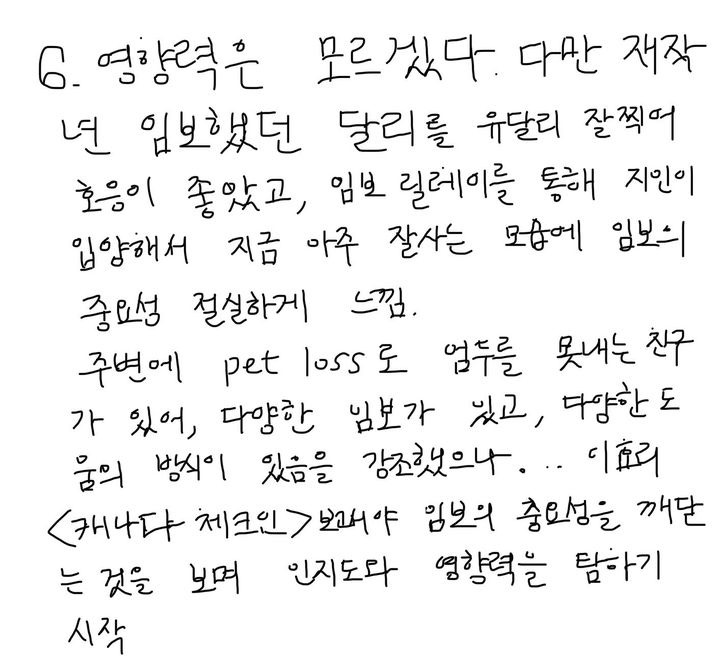 6. 영향력은 모르겠다. 다만 재작
년 임보했던 달리를 유달리 잘찍어
호응이 좋았고, 임보 릴레이를 통해 지인이
입양해서 지금 아주 잘사는 모습에 임보의
중요성 절실하게 느낌.
주변에 pet loss로 엄두를 못내는 친구
가 있어, 다양한 임보가 있고, 다양한 도
움의 방식이 있음을 강조했으나... 이효리
<캐나다 체크인> 보고야 임보의 중요성을 깨닫
는 것을 보며 인지도와 영향력을 탐하기
시작